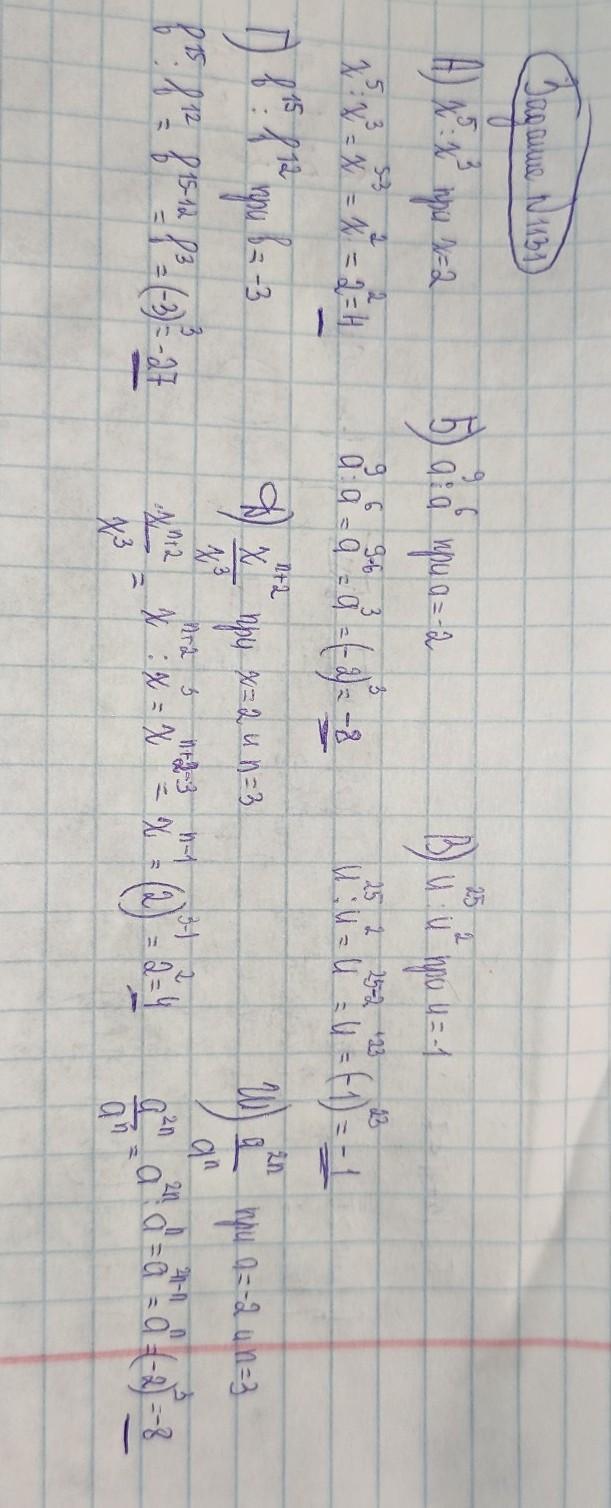 Задание №1131
А) x⁵ : x³ при x=2
x⁵ : x³ = x⁵⁻³ = x² = 2² = 4
Б) a⁹ : a⁶ при a=-2
a⁹ : a⁶ = a⁹⁻⁶ = a³ = (-2)³ = -8
В) u²⁵ : u² при u=-1
u²⁵ : u² = u²⁵⁻² = u⁺²³ = (-1)²³ = -1
Г) b¹⁵ : b¹² при b=-3
b¹⁵ : b¹² = b¹⁵⁻¹² = b³ = (-3)³ = -27
Д) xⁿ⁺²/x³ при x=2 и n=3
xⁿ⁺²/x³ = xⁿ⁺² : x³ = xⁿ⁺²⁻³ = xⁿ⁻¹ = (2)³⁻¹ = 2² = 4
a²ⁿ/aⁿ при a=-2 и n=3
a²ⁿ/aⁿ = a²ⁿ : aⁿ = a²ⁿ⁻ⁿ = aⁿ = (-2)³ = -8